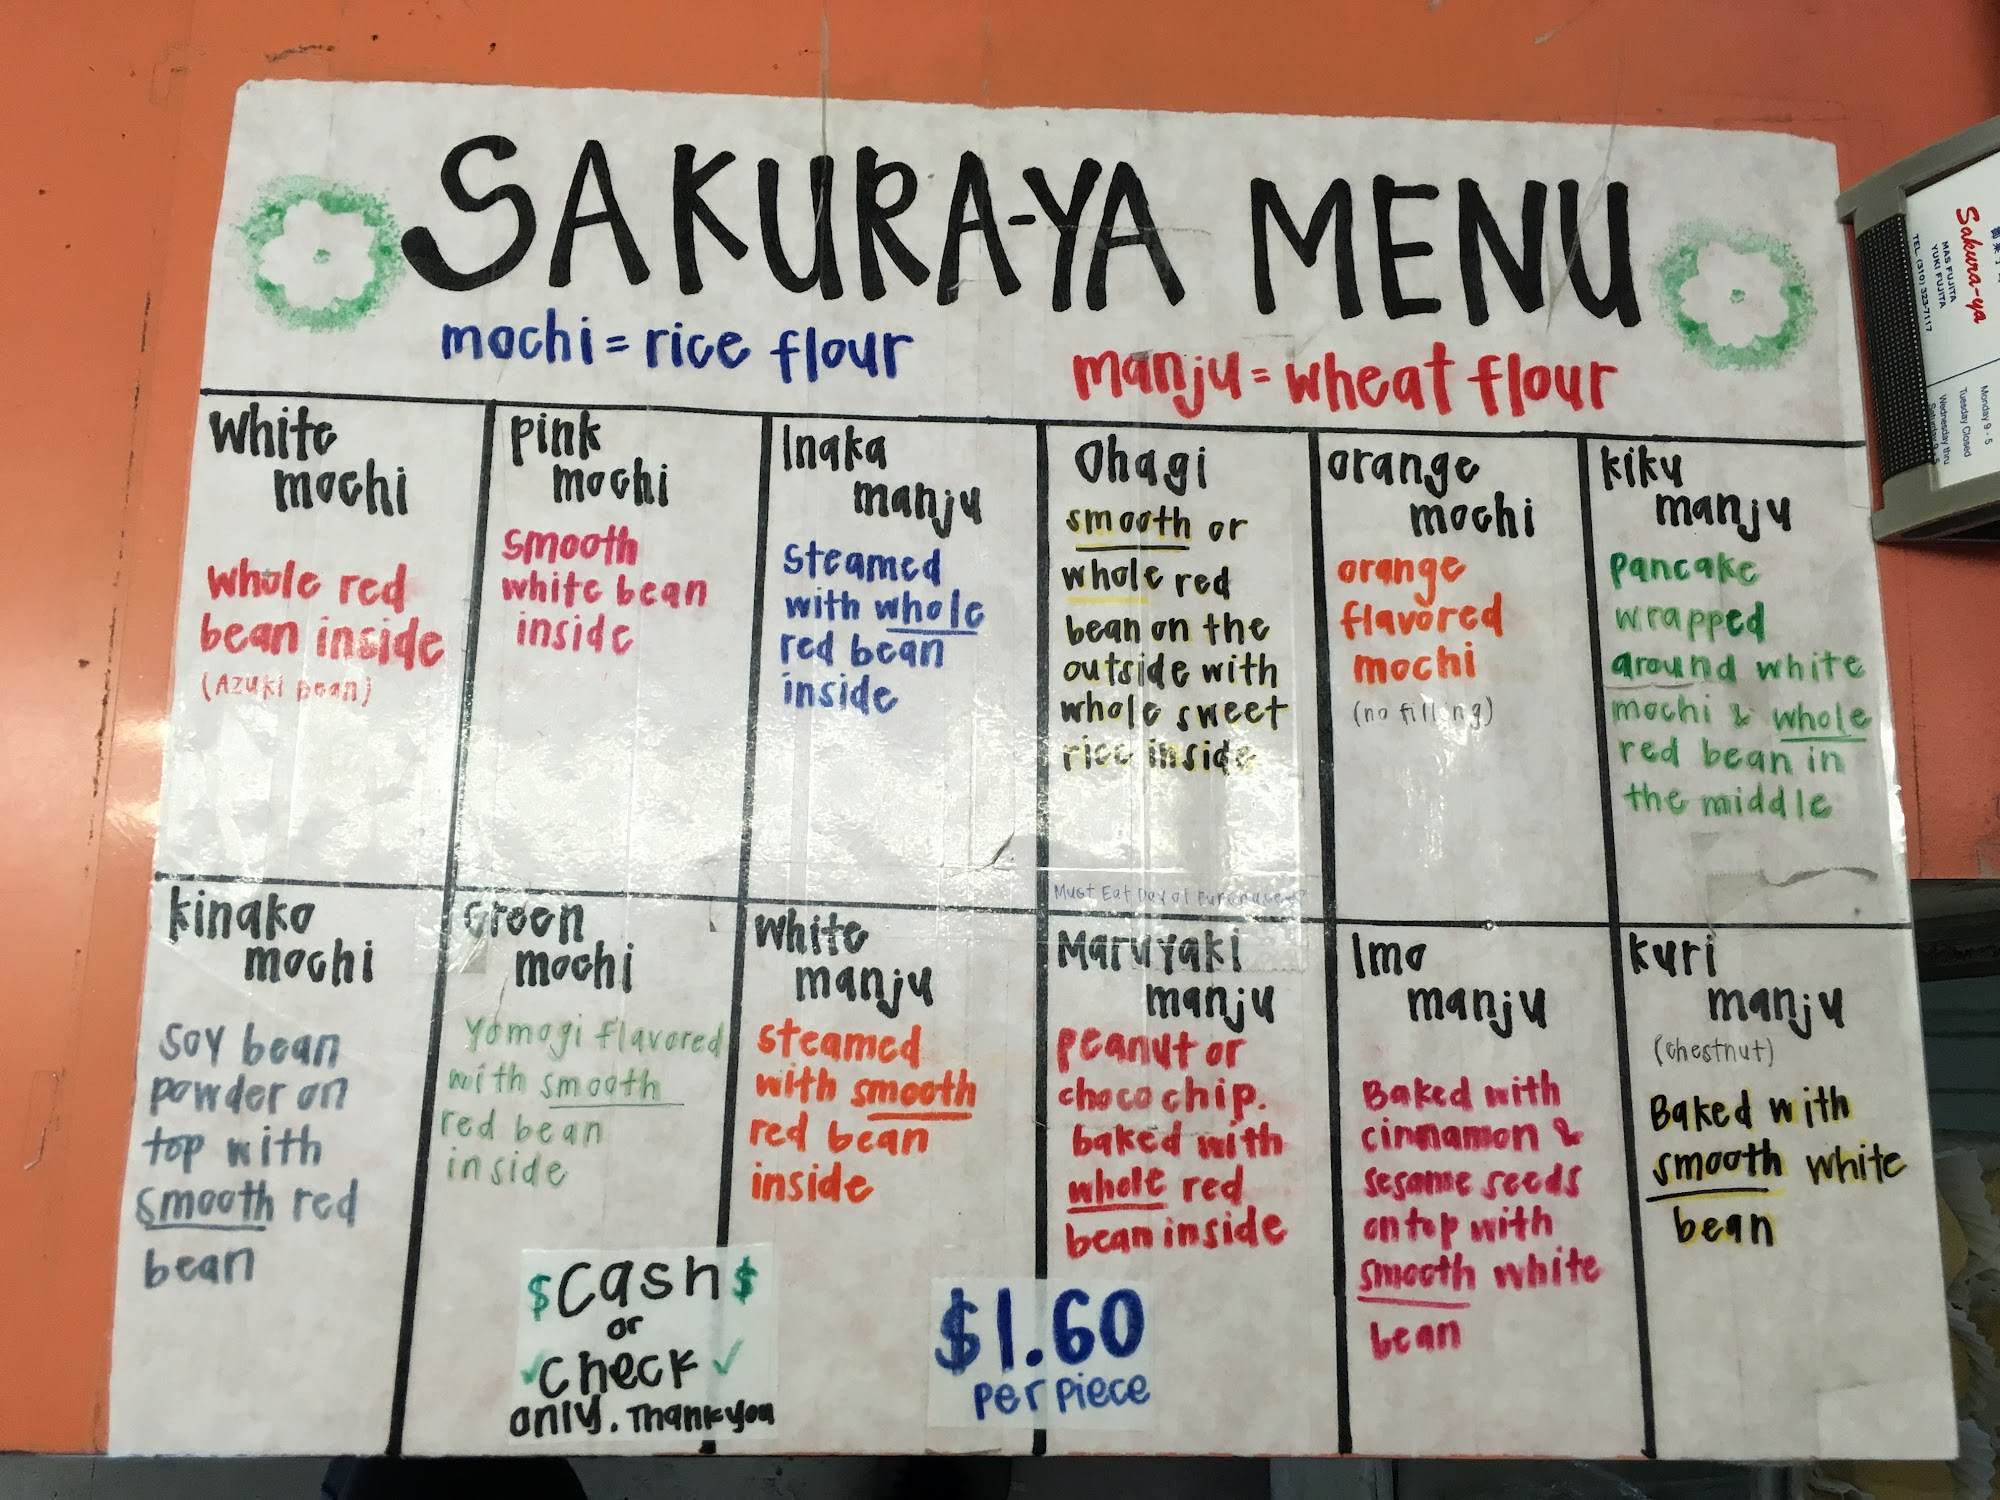 SAKURA-YA MENU
mochi = rice flour
manju = wheat flour
White
mochi
whole red
bean inside
(Azuki bean)
pink
mochi
smooth
white bean
inside
Inaka
manju
steamed
with whole
red bean
inside
Ohagi
smooth or
whole red
bean on the
outside with
whole sweet
rice inside
Must Eat Day of Purchase
orange
mochi
orange
flavored
mochi
(no filling)
kiku
manju
pancake
wrapped
around white
mochi & whole
red bean in
the middle
kinako
mochi
soy bean
powder on
top with
smooth red
bean
Green
mochi
yomogi flavored
with smooth
red bean
inside
White
manju
steamed
with smooth
red bean
inside
Maruyaki
manju
peanut or
choco chip.
baked with
whole red
bean inside
Imo
manju
Baked with
cinnamon &
sesame seeds
on top with
smooth white
bean
kuri
manju
(chestnut)
Baked with
smooth white
bean
$ Cash $
or
✓ Check ✓
only. Thank you
$1.60
per piece
Sakura-ya
MAS FUJITA
YUKI FUJITA
TEL. (310) 323-7117
Monday 9 - 5
Tuesday Closed
Wednesday thru
Saturday 9 - 5